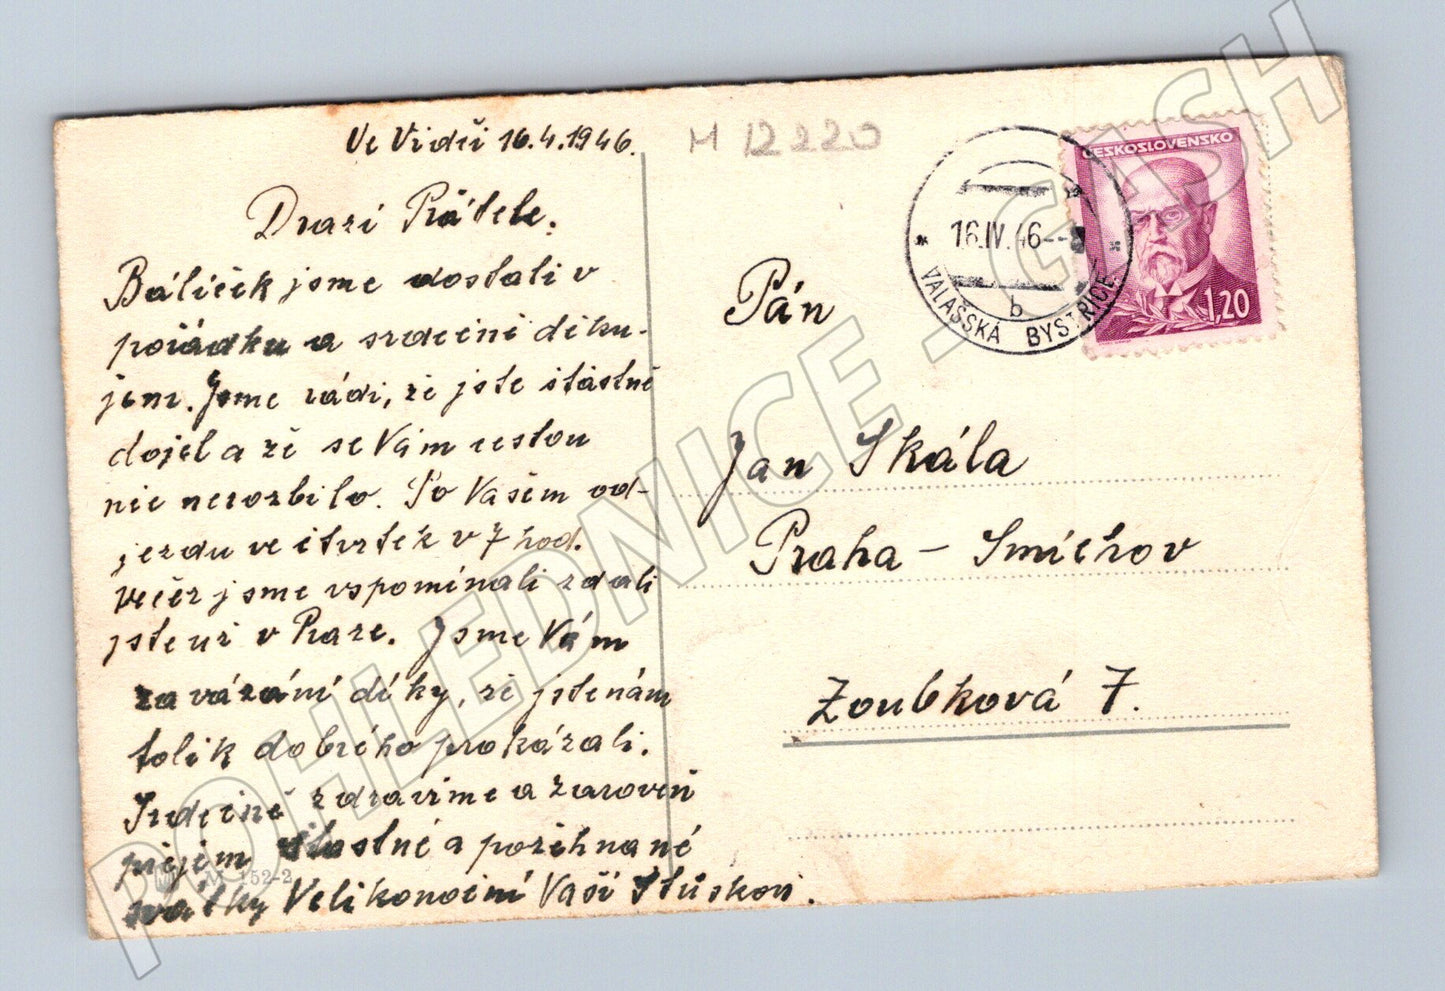 Ve Vidči 16.4.1946.
Drazí Přátele.
Balíček jsme dostali v
pořádku a srdečně děku-
jem. Jsme rádi, že jste šťastně
dojel a že se Vám cestou
nic nerozbilo. Po Vašem od-
jezdu ve čtvrtek v 7 hod.
večer jsme vspomínali zdali
jste už v Praze. Jsme Vám
zavázáni díky, že jste nám
tolik dobrého prokázali.
Srdečně zdravíme a zároveň
přejem šťastné a požehnané
svátky Velikonoční Vaši
M 152-2
M 12220
ČESKOSLOVENSKO
1,20
16.IV.46
b
VALAŠSKÁ BYSTŘICE
Pán
Jan Skála
Praha - Smíchov
Zoubková 7.
POHLEDNICE - CASH